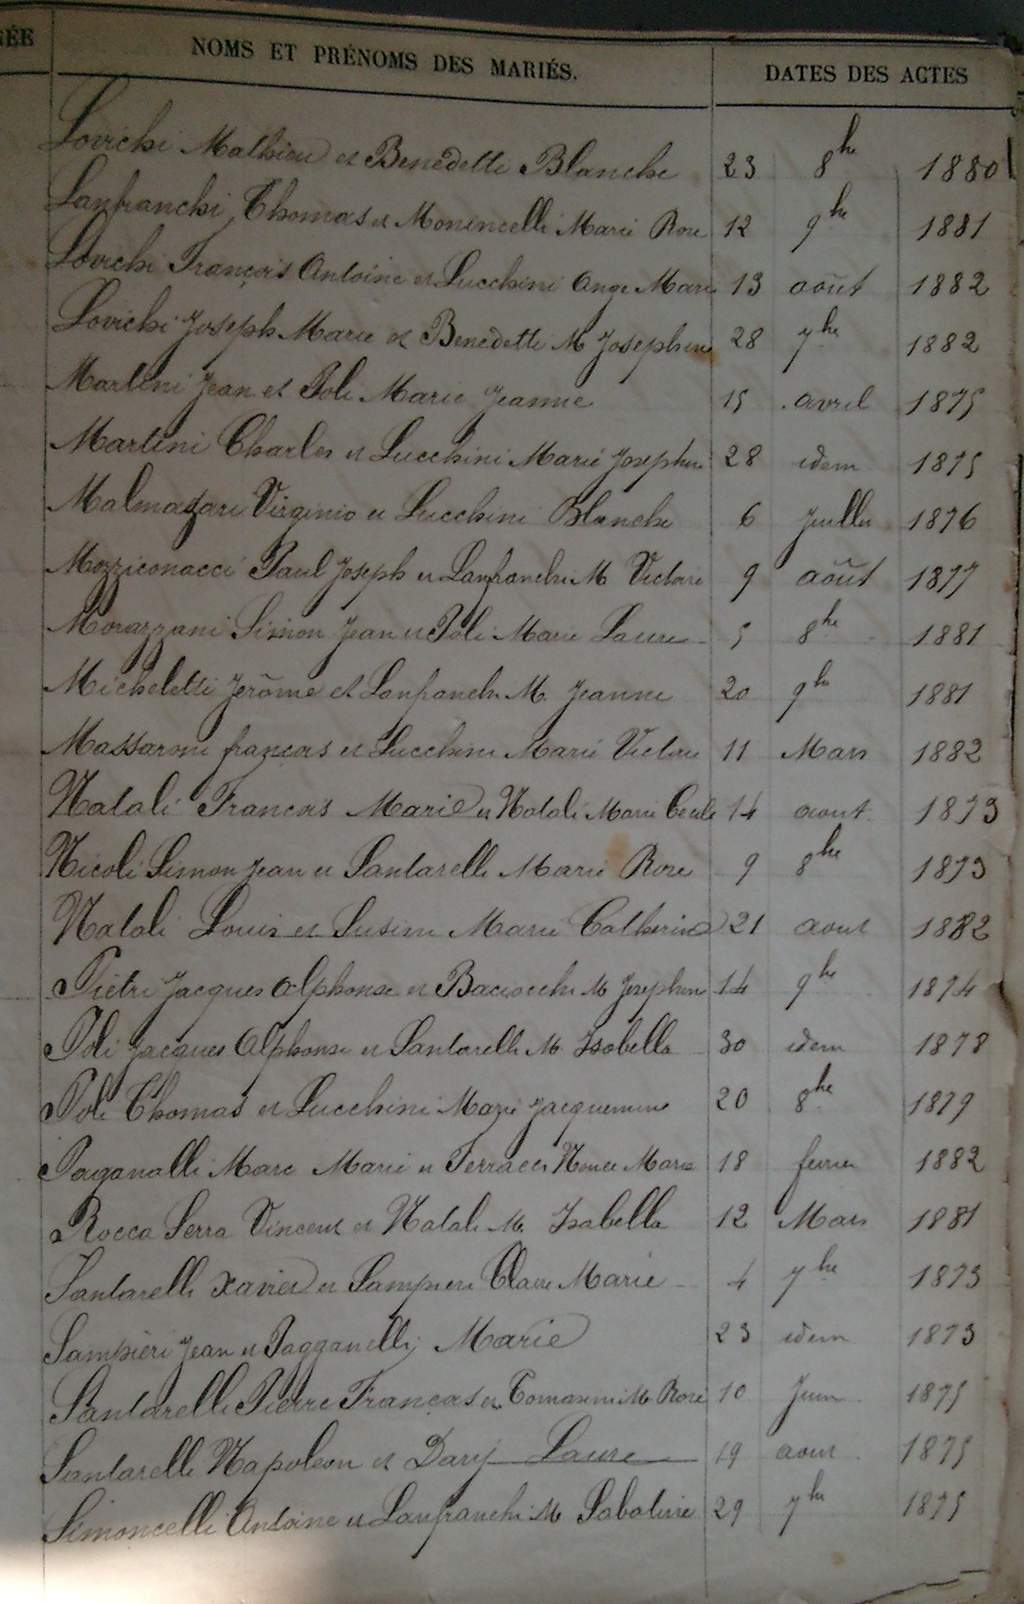 NÉE NOMS ET PRÉNOMS DES MARIÉS. DATES DES ACTES
Lovichi Mathieu et Benedetti Blanche 23 8bre 1880
Lanfranchi Thomas et Monincelli Marie Rose 12 9bre 1881
Lovichi François Antoine et Lucchini Ange Marie 13 août 1882
Lovichi Joseph Marie et Benedetti M Josephine 28 7bre 1882
Martini Jean et Poli Marie Jeanne 15 avril 1875
Martini Charles et Lucchini Marie Josephine 28 idem 1875
Malmazari Virginio et Lucchini Blanche 6 Juillet 1876
Mozziconacci Paul Joseph et Lanfranchi M Victoire 9 août 1877
Morazzani Simon Jean et Poli Marie Laure 5 8bre 1881
Micheletti Jerôme et Lanfranchi M. Jeanne 20 9bre 1881
Massaroni françois et Lucchini Marie Victoire 11 Mars 1882
Natali Francois Marie et Natali Marie Cecile 14 aout 1873
Nicoli Simon Jean et Santarelli Marie Rose 9 8bre 1873
Natali Louis et Susini Marie Catherine 21 aout 1882
Pietri Jacques Alphonse et Baciocchi M Josephine 14 9bre 1874
Poli Jacques Alphonse et Santarelli M Isabelle 30 idem 1878
Poli Thomas et Lucchini Marie Jacquemine 20 8bre 1879
Paganalli Marc Marie et Terracci Nonce Marie 18 fevrier 1882
Rocca Serra Vincent et Natali M. Isabelle 12 Mars 1881
Santarelli Xavier et Sampieri Claire Marie 4 7bre 1873
Sampieri Jean et Pagganelli Marie 23 idem 1873
Santarelli Pierre François et Tomasini M Rose 10 Juin 1875
Santarelli Napoleon et Dary Laure 19 aout 1875
Simoncelli Antoine et Lanfranchi M Sabatine 29 7bre 1875